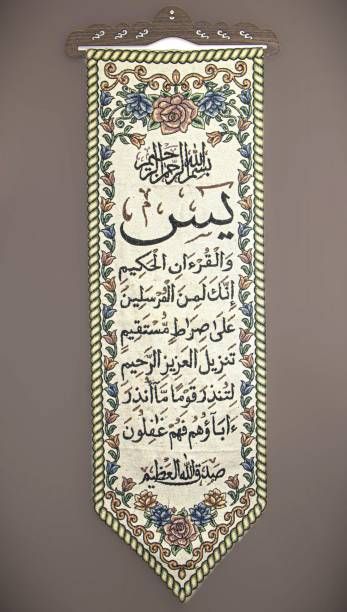 بسم الله الرحمن الرحيم
يس
والقرءان الحكيم
إنك لمن المرسلين
على صراط مستقيم
تنزيل العزيز الرحيم
لتنذر قوما ما أنذر
ءاباؤهم فهم غفلون
صدق الله العظيم